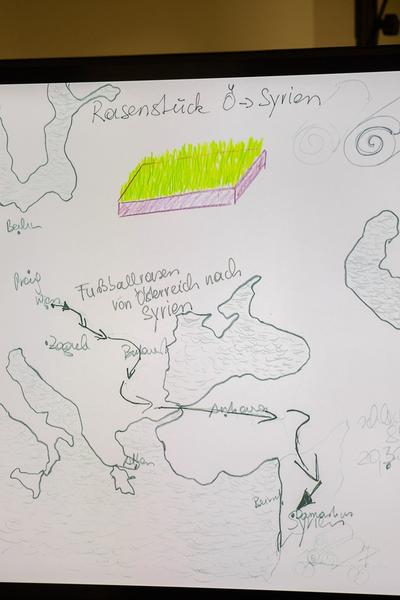 Rasenstück Ö→Syrien
Berlin
Prag
Wien
Fußballrasen
von Österreich nach
Syrien
Zagreb
Bukarest
Ankara
Athen
Beirut
Damaskus
Syrien